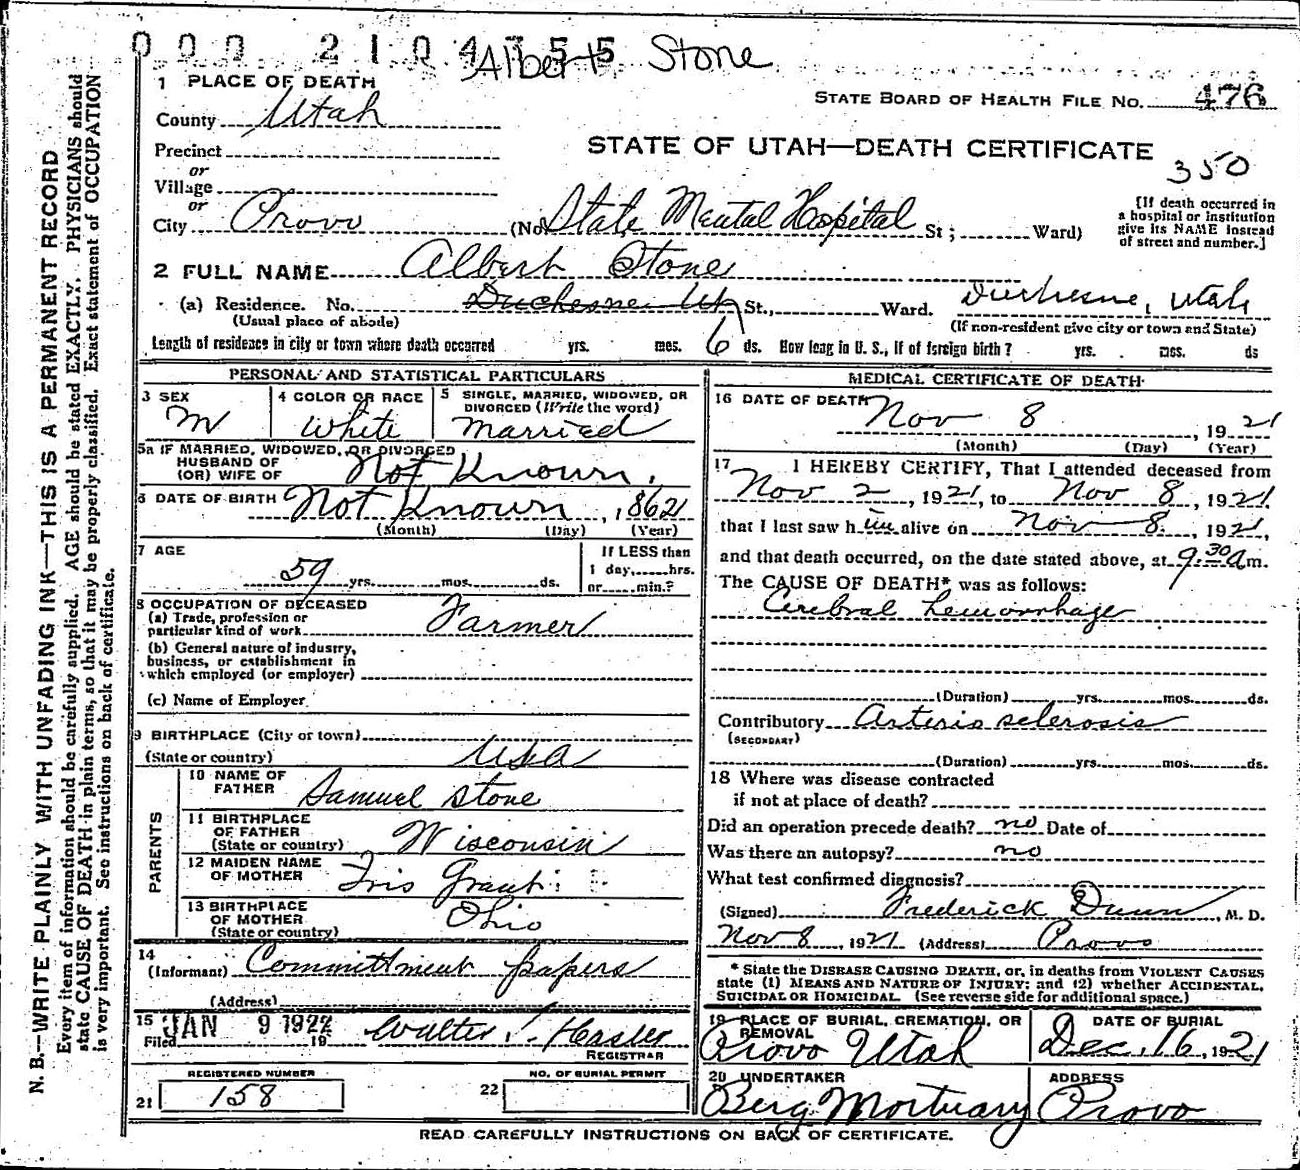 000 2104755
Albert Stone
1 PLACE OF DEATH
STATE BOARD OF HEALTH FILE NO. 476
County Utah
STATE OF UTAH—DEATH CERTIFICATE
Precinct
350
or
Village
or
City Provo (No. State Mental Hospital St; Ward)
[If death occurred in
a hospital or institution
give its NAME instead
of street and number.]
2 FULL NAME Albert Stone
(a) Residence. No. Duchesne Ut St., Ward. Duchesne, Utah
(Usual place of abode) (If non-resident give city or town and State)
Length of residence in city or town where death occurred yrs. mos. 6 ds. How long in U. S., if of foreign birth? yrs. mos. ds
PERSONAL AND STATISTICAL PARTICULARS
3 SEX
M
4 COLOR OR RACE
White
5 SINGLE, MARRIED, WIDOWED, OR
DIVORCED (Write the word)
Married
5a IF MARRIED, WIDOWED, OR DIVORCED
HUSBAND OF
(OR) WIFE OF Not Known.
6 DATE OF BIRTH Not Known, 1862
(Month) (Day) (Year)
7 AGE
59 yrs. mos. ds.
If LESS than
1 day, hrs.
or min.?
8 OCCUPATION OF DECEASED
(a) Trade, profession or
particular kind of work Farmer
(b) General nature of industry,
business, or establishment in
which employed (or employer)
(c) Name of Employer
9 BIRTHPLACE (City or town)
(State or country) USA
PARENTS
10 NAME OF
FATHER Samuel Stone
11 BIRTHPLACE
OF FATHER
(State or country) Wisconsin
12 MAIDEN NAME
OF MOTHER Iris Grant
13 BIRTHPLACE
OF MOTHER
(State or country) Ohio
14
(Informant) Committment papers
(Address)
15 JAN 9 1922
Filed 19 Walter T. Hasler
REGISTRAR
REGISTERED NUMBER
21 158
NO. OF BURIAL PERMIT
22
MEDICAL CERTIFICATE OF DEATH
16 DATE OF DEATH Nov 8, 1921
(Month) (Day) (Year)
17 I HEREBY CERTIFY, That I attended deceased from
Nov 2, 1921, to Nov 8, 1921
that I last saw him alive on Nov 8, 1921,
and that death occurred, on the date stated above, at 9:30 a m.
The CAUSE OF DEATH* was as follows:
Cerebral hemorrhage
(Duration) yrs. mos. ds.
Contributory Arterio sclerosis
(SECONDARY)
(Duration) yrs. mos. ds.
18 Where was disease contracted
if not at place of death?
Did an operation precede death? no Date of
Was there an autopsy? no
What test confirmed diagnosis?
(Signed) Frederick Dunn, M. D.
Nov 8, 1921 (Address) Provo
* State the DISEASE CAUSING DEATH, or, in deaths from VIOLENT CAUSES
state (1) MEANS AND NATURE OF INJURY; and (2) whether ACCIDENTAL,
SUICIDAL OR HOMICIDAL. (See reverse side for additional space.)
19 PLACE OF BURIAL, CREMATION, OR
REMOVAL
Provo Utah
DATE OF BURIAL
Dec. 16, 1921
20 UNDERTAKER
Berg Mortuary
ADDRESS
Provo
READ CAREFULLY INSTRUCTIONS ON BACK OF CERTIFICATE.
N. B.—WRITE PLAINLY WITH UNFADING INK—THIS IS A PERMANENT RECORD
Every item of information should be carefully supplied. AGE should be stated EXACTLY. PHYSICIANS should
state CAUSE OF DEATH in plain terms, so that it may be properly classified. Exact statement of OCCUPATION
is very important. See instructions on back of certificate.